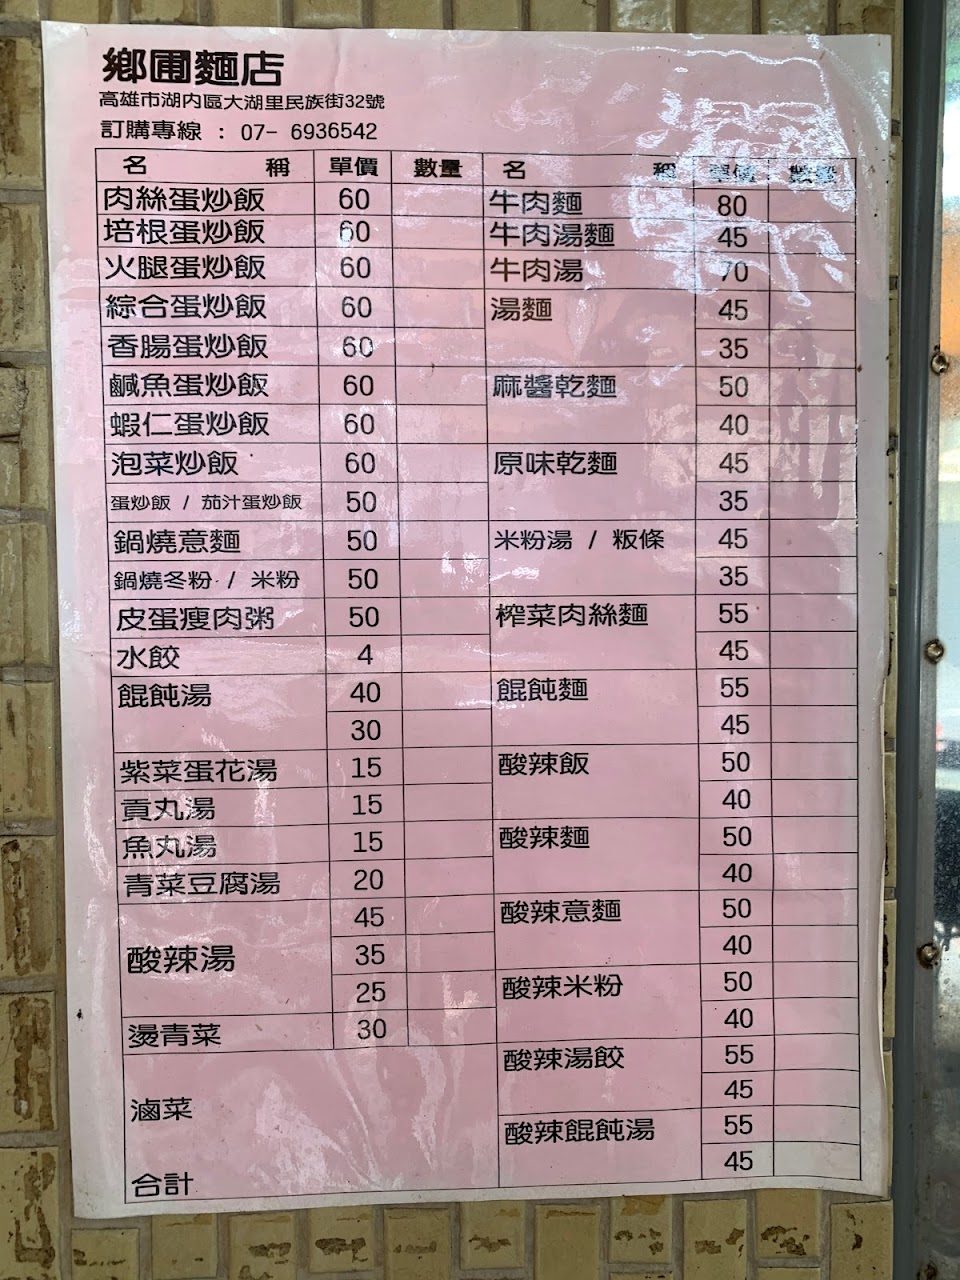 鄉圃麵店
高雄市湖內區大湖里民族街32號
訂購專線 : 07- 6936542
名 稱 單價 數量 名 稱 單價 數量
肉絲蛋炒飯 60 牛肉麵 80
培根蛋炒飯 60 牛肉湯麵 45
火腿蛋炒飯 60 牛肉湯 70
綜合蛋炒飯 60 湯麵 45
香腸蛋炒飯 60 35
鹹魚蛋炒飯 60 麻醬乾麵 50
蝦仁蛋炒飯 60 40
泡菜炒飯 60 原味乾麵 45
蛋炒飯 / 茄汁蛋炒飯 50 35
鍋燒意麵 50 米粉湯 / 粄條 45
鍋燒冬粉 / 米粉 50 35
皮蛋瘦肉粥 50 榨菜肉絲麵 55
水餃 4 45
餛飩湯 40 餛飩麵 55
30 45
紫菜蛋花湯 15 酸辣飯 50
貢丸湯 15 40
魚丸湯 15 酸辣麵 50
青菜豆腐湯 20 40
酸辣湯 45 酸辣意麵 50
35 40
25 酸辣米粉 50
燙青菜 30 40
酸辣湯餃 55
滷菜 45
酸辣餛飩湯 55
合計 45